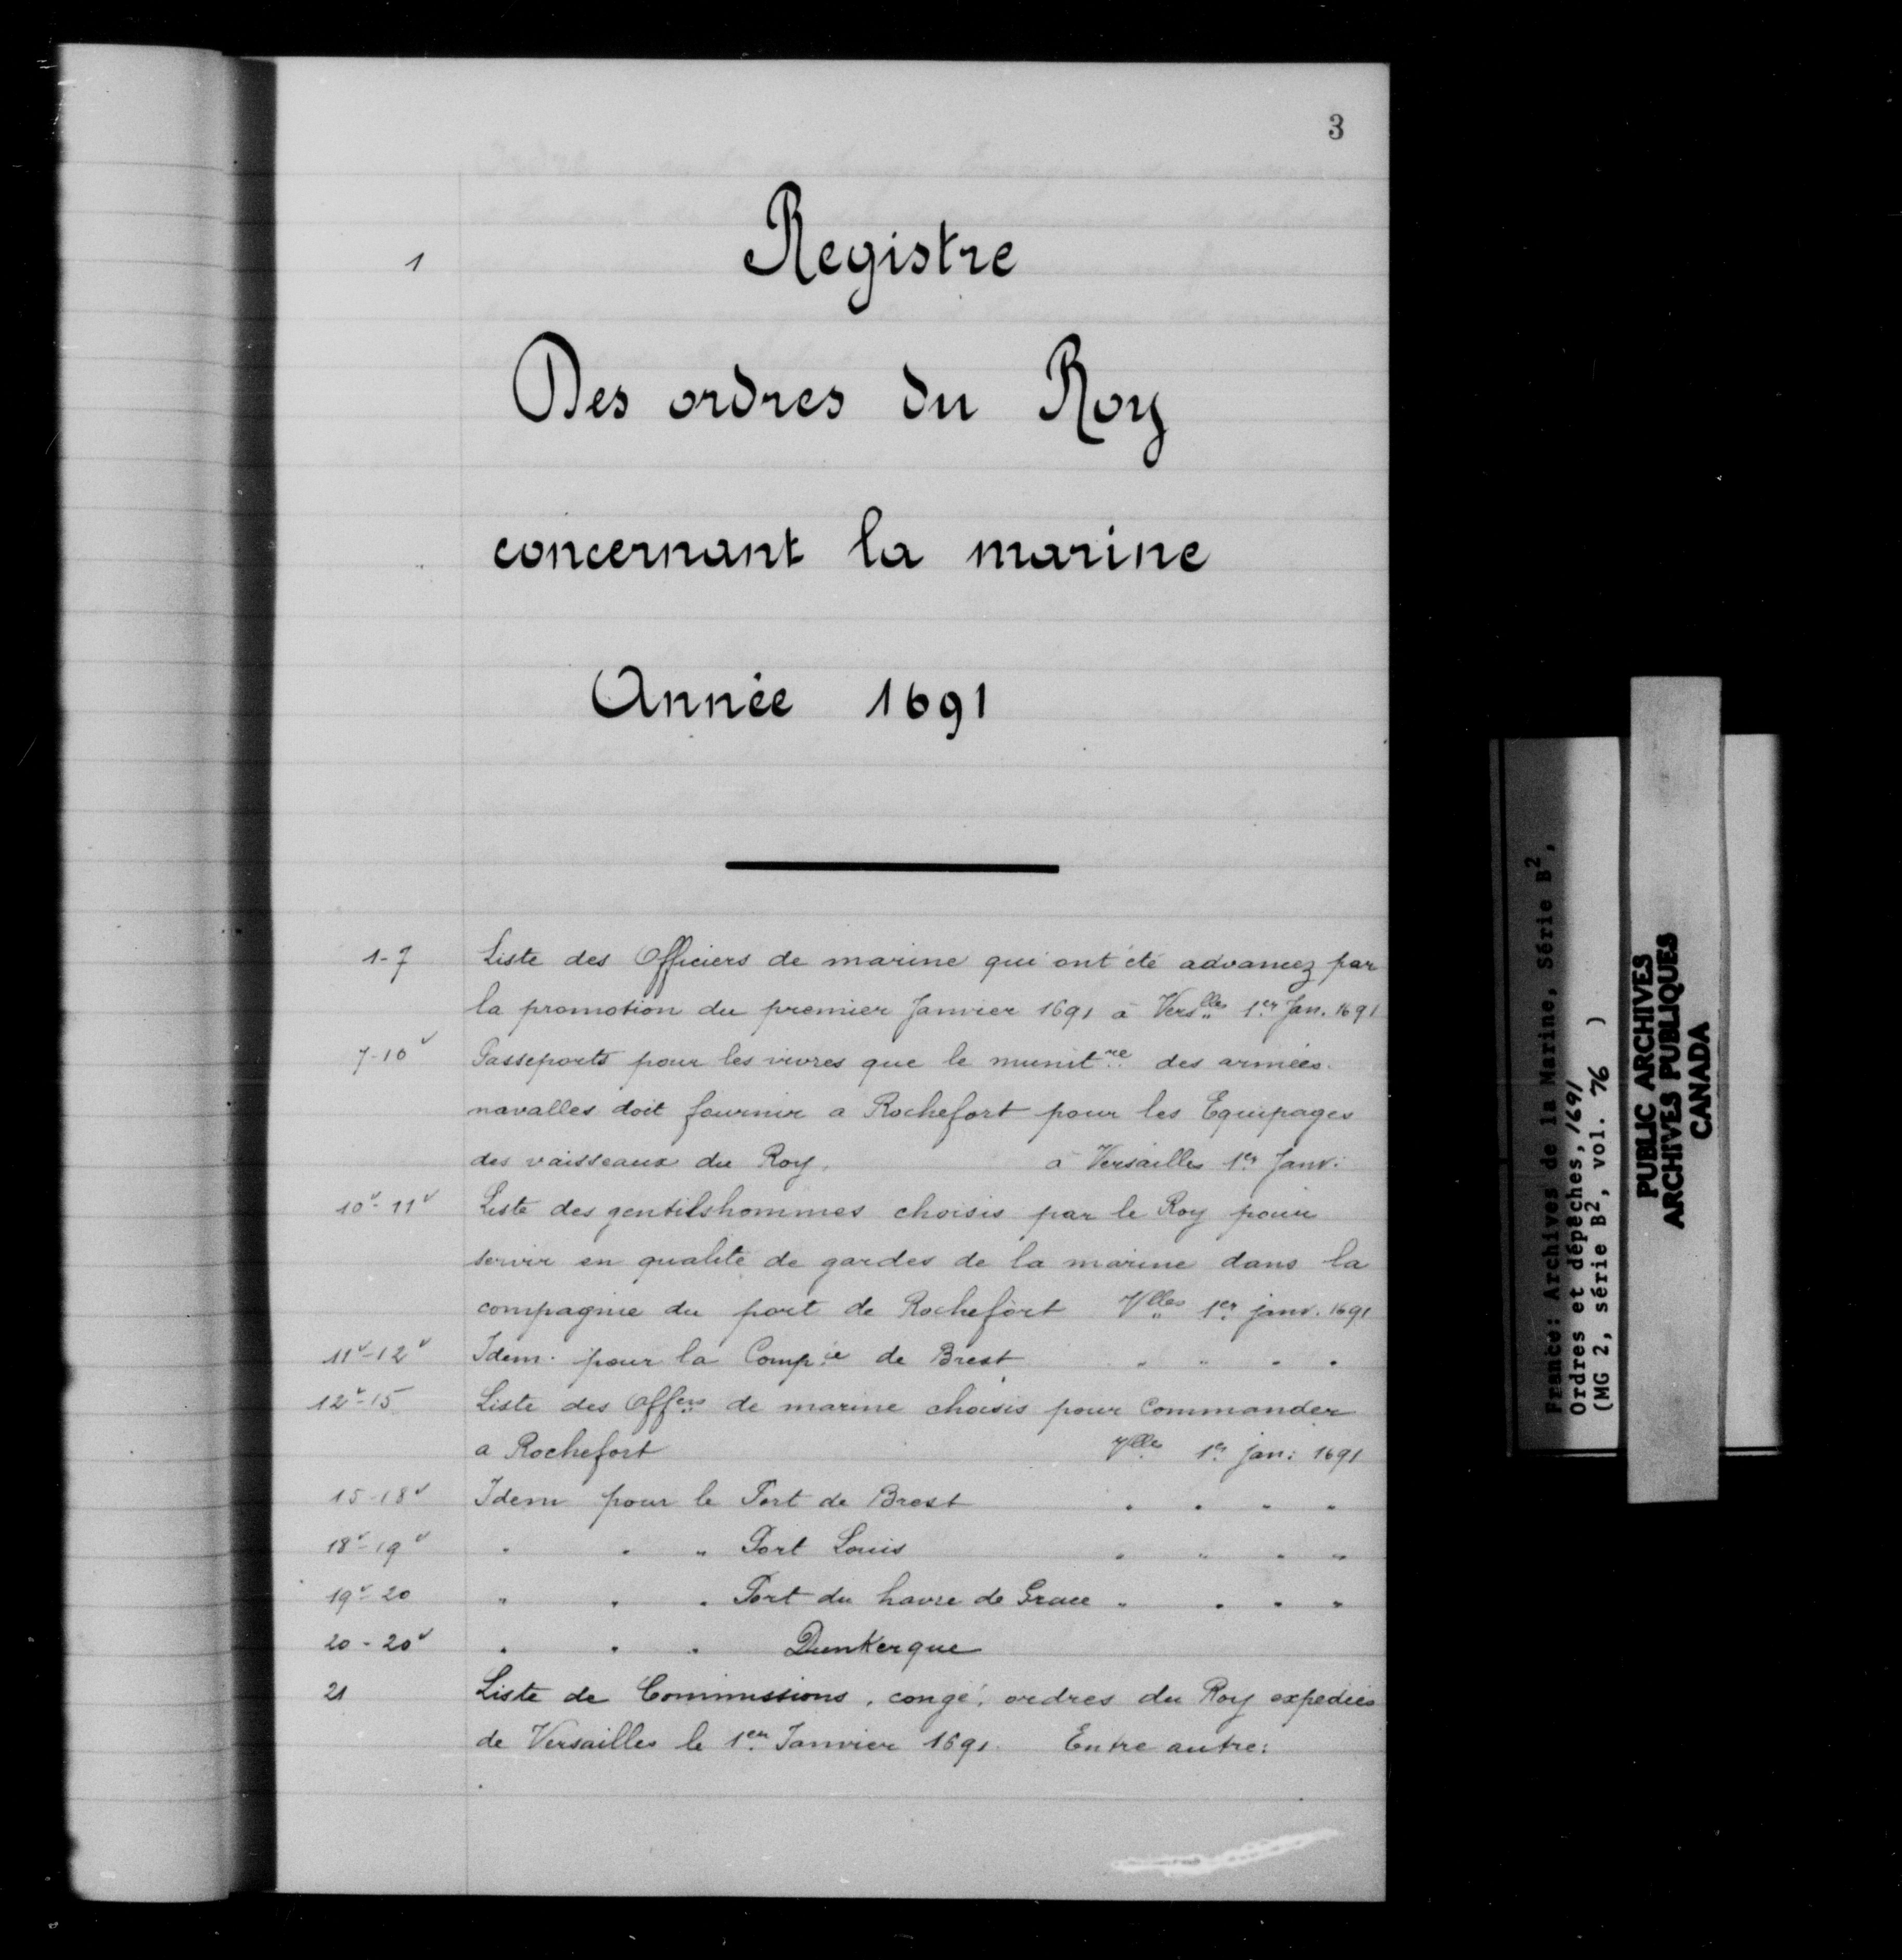 3
1 Registre
Des ordres du Roy
concernant la marine
Année 1691
1-7 Liste des Officiers de marine qui ont été advancez par
la promotion du premier Janvier 1691 à Vers.lles 1.er Jan. 1691
7-10v Passeports pour les vivres que le munit.re des armées
navalles doit fournir a Rochefort pour les Equipages
des vaisseaux du Roy. à Versailles 1.er Janv:
10v-11v Liste des gentilshommes choisis par le Roy pour
servir en qualité de gardes de la marine dans la
compagnie du port de Rochefort V.lles 1.er janv. 1691
11v-12v Idem pour la Comp.ie de Brest " " " "
12v-15 Liste des Off.ers de marine choisis pour Commander
a Rochefort V.lles 1.er jan: 1691
15-18v Idem pour le Port de Brest " " " "
18v-19v " " " Port Louis " " " "
19v-20 " " " Port du havre de Grace " " " "
20-20v " " " Dunkerque
21 Liste de Commissions, congé, ordres du Roy expediés
de Versailles le 1.er Janvier 1691. Entre autre:
France: Archives de la Marine, Série B2,
Ordres et dépêches, 1691
(MG 2, série B2, vol. 76 )
PUBLIC ARCHIVES
ARCHIVES PUBLIQUES
CANADA